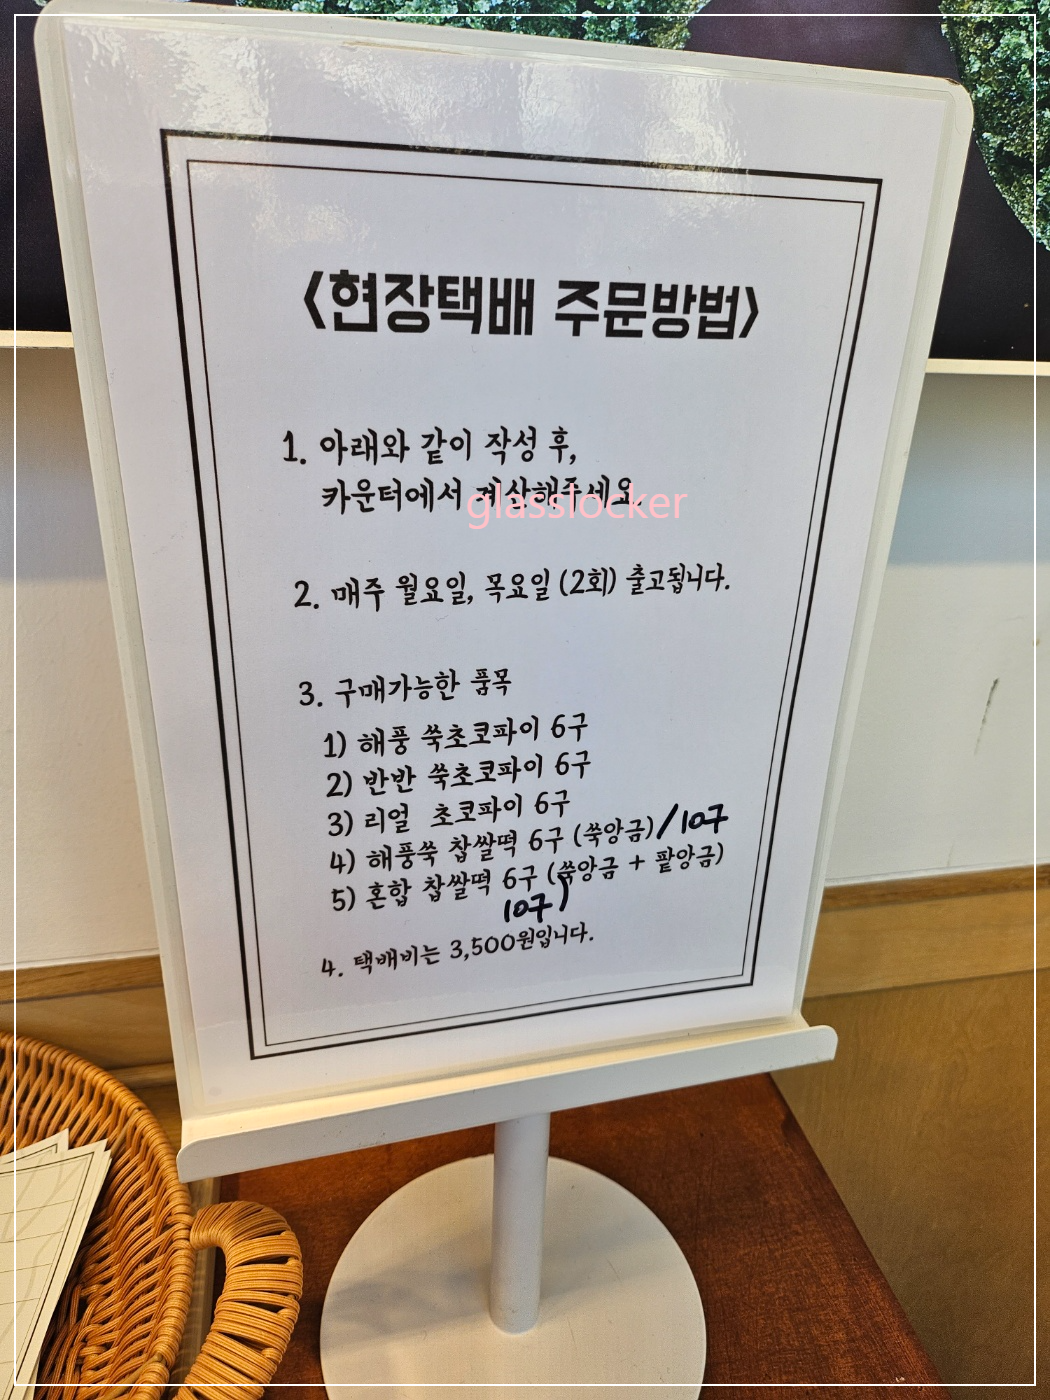 <현장택배 주문방법>
1. 아래와 같이 작성 후,
카운터에서 계산해주세요.
glasslocker
2. 매주 월요일, 목요일 (2회) 출고됩니다.
3. 구매가능한 품목
1) 해풍 쑥초코파이 6구
2) 반반 쑥초코파이 6구
3) 리얼 초코파이 6구
4) 해풍쑥 찹쌀떡 6구 (쑥앙금)/10구
5) 혼합 찹쌀떡 6구 (쑥앙금 + 팥앙금)
10구)
4. 택배비는 3,500원입니다.